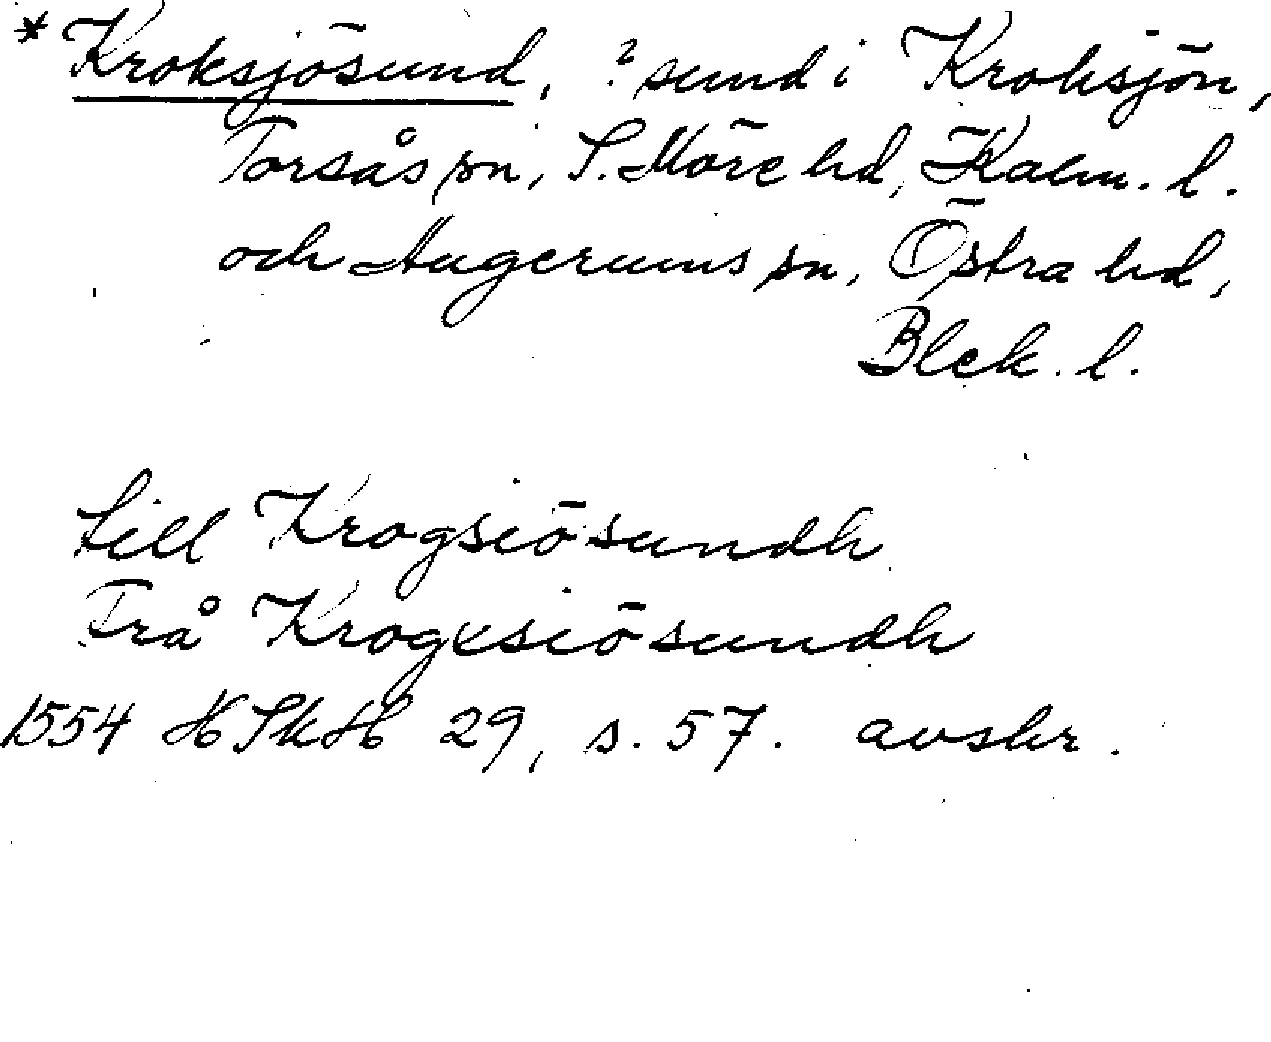 * Kroksjösund, ? sund i Kroksjön,
Torsås sn, S. Möre hd, Kalm. l.
och Augerums sn, Östra hd,
Blek. l.
till Krogsiösundh
Frå Krogxsiösundh
1554 HSkH 29, s. 57. avskr.